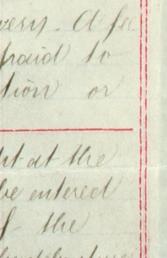 very. A fe
paid to
tion or
ht at the
be entered
f the